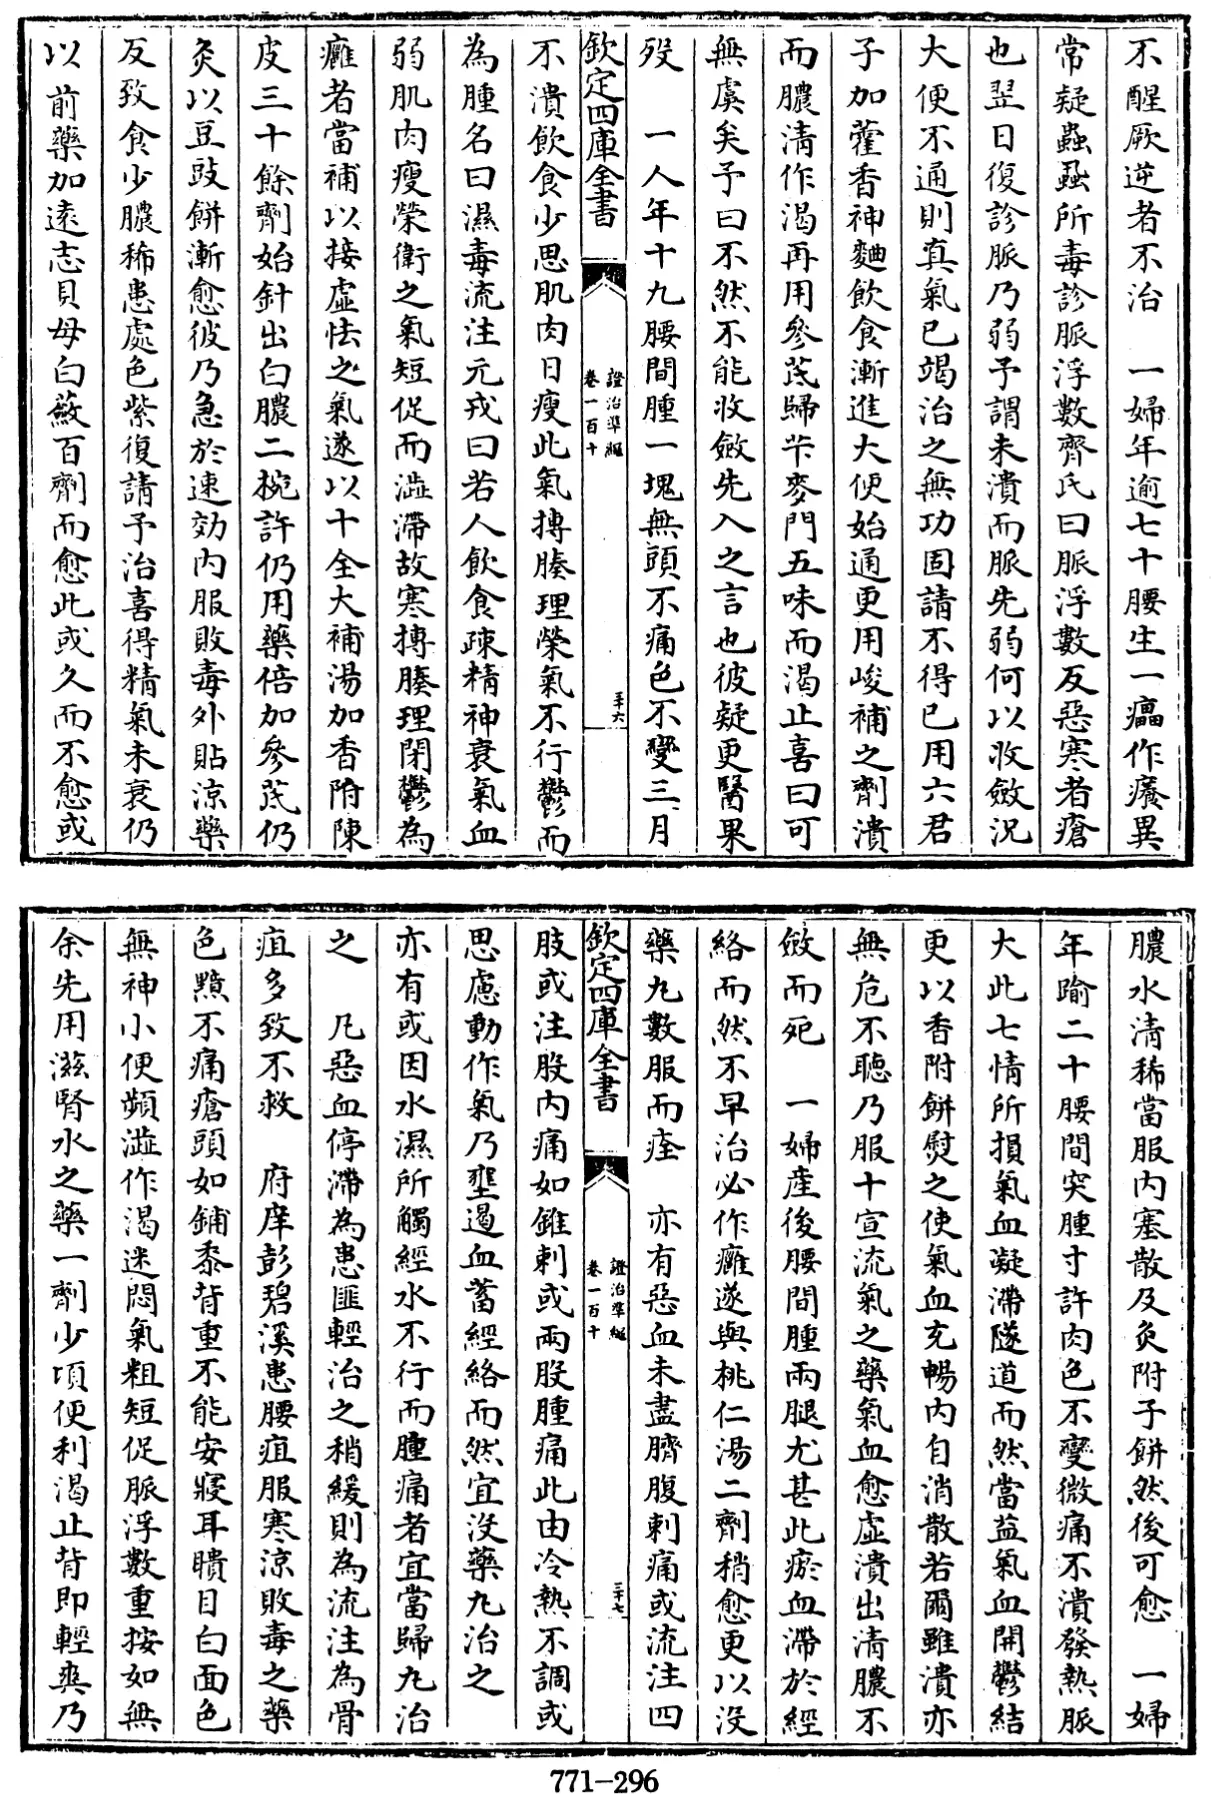 不醒厥逆者不治　一婦年逾七十腰生一癟作癢異
常疑蟲蝨所毒診脈浮數齊氏曰脈浮數反惡寒者瘡
也翌日復診脈乃弱予謂未潰而脈先弱何以收斂況
大便不通則真氣已竭治之無功固請不得已用六君
子加藿香神麯飲食漸進大便始通更用峻補之劑潰
而膿清作渴再用參芪歸朮麥門五味而渴止喜曰可
無虞矣予曰不然不能收斂先入之言也彼疑更醫果
歿　一人年十九腰間腫一塊無頭不痛色不變三月
欽定四庫全書
證治準繩
卷一百十
三十六
不潰飲食少思肌肉日瘦此氣搏腠理榮氣不行鬱而
為腫名曰濕毒流注元戎曰若人飲食疎精神衰氣血
弱肌肉瘦榮衛之氣短促而澁滯故寒搏腠理閉鬱為
癰者當補以接虛怯之氣遂以十全大補湯加香附陳
皮三十餘劑始針出白膿二椀許仍用藥倍加參芪仍
灸以豆豉餅漸愈彼乃急於速効内服敗毒外貼涼藥
反致食少膿稀患處色紫復請予治喜得精氣未衰仍
以前藥加遠志貝母白蘞百劑而愈此或久而不愈或
膿水清稀當服内塞散及灸附子餅然後可愈　一婦
年踰二十腰間突腫寸許肉色不變微痛不潰發熱脈
大此七情所損氣血凝滯隧道而然當益氣血開鬱結
更以香附餅熨之使氣血充暢内自消散若爾雖潰亦
無危不聽乃服十宣流氣之藥氣血愈虛潰出清膿不
斂而死　一婦產後腰間腫兩腿尤甚此瘀血滯於經
絡而然不早治必作癰遂與桃仁湯二劑稍愈更以没
藥丸數服而痊　亦有惡血未盡臍腹刺痛或流注四
欽定四庫全書
證治準繩
卷一百十
三十七
肢或注股内痛如錐刺或兩股腫痛此由冷熱不調或
思慮動作氣乃壅遏血蓄經絡而然宜没藥丸治之
亦有或因水濕所觸經水不行而腫痛者宜當歸丸治
之　凡惡血停滯為患匪輕治之稍緩則為流注為骨
疽多致不救　府庠彭碧溪患腰疽服寒涼敗毒之藥
色黯不痛瘡頭如鋪黍背重不能安寢耳聵目白面色
無神小便頻澁作渴迷悶氣粗短促脈浮數重按如無
余先用滋腎水之藥一劑少頃便利渴止背即輕爽乃
771-296